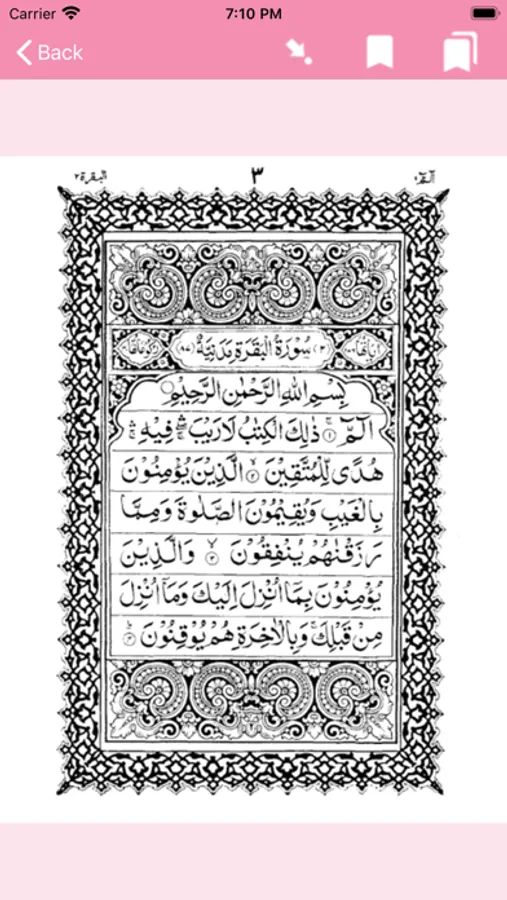 Carrier 7:10 PM
Back
البقرة ٢ ٣ الٓمّٓ ١
(٢) سُوۡرَةُ الۡبَقَرَةِ مَدَنِيَّةٌ (٨٧)
بِسۡمِ اللهِ الرَّحۡمٰنِ الرَّحِيۡمِ
الٓمّٓ ۚ﴿۱﴾ ذٰلِكَ الۡكِتٰبُ لَا رَيۡبَ ۛۖۚ فِيۡهِ ۛۚ
هُدًى لِّلۡمُتَّقِيۡنَ ۙ﴿۲﴾ الَّذِيۡنَ يُؤۡمِنُوۡنَ
بِالۡغَيۡبِ وَيُقِيۡمُوۡنَ الصَّلٰوةَ وَمِمَّا
رَزَقۡنٰهُمۡ يُنۡفِقُوۡنَ ۙ﴿۳﴾ وَالَّذِيۡنَ
يُؤۡمِنُوۡنَ بِمَاۤ اُنۡزِلَ اِلَيۡكَ وَمَاۤ اُنۡزِلَ
مِنۡ قَبۡلِكَۚ وَبِالۡاٰخِرَةِ هُمۡ يُوۡقِنُوۡنَ ؕ﴿۴﴾